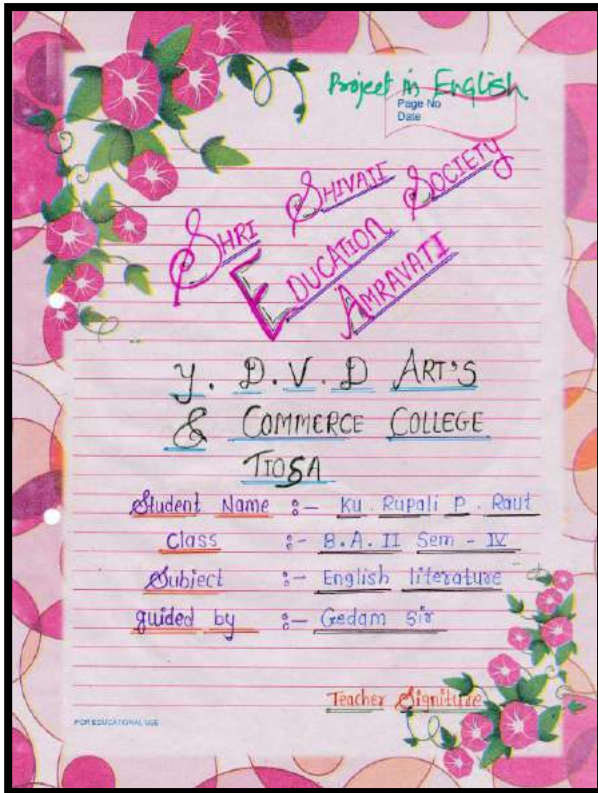 Project in English
Page No
Date
SHRI SHIVAJI SOCIETY
EDUCATION AMRAVATI
Y. D.V.D ART'S
& COMMERCE COLLEGE
TIOSA
Student Name :- Ku. Rupali P. Raut
Class :- B.A.II Sem - IV
Subject :- English literature
guided by :- Gedam Sir
Teacher Signiture
FOR EDUCATIONAL USE